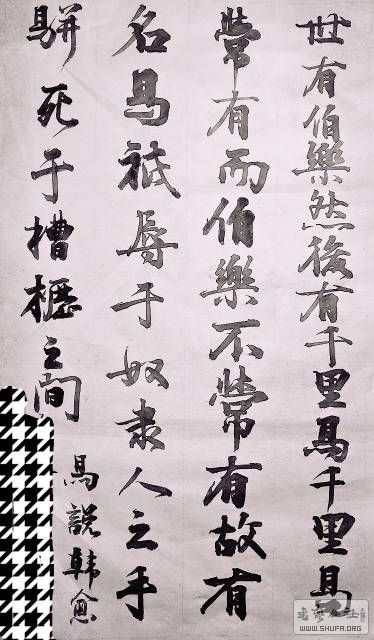 世有伯樂然後有千里馬千里馬
常有而伯樂不常有故有
名馬祇辱于奴隶人之手
駢死于槽櫪之間
馬説韩愈
WWW.SHUFA.ORG